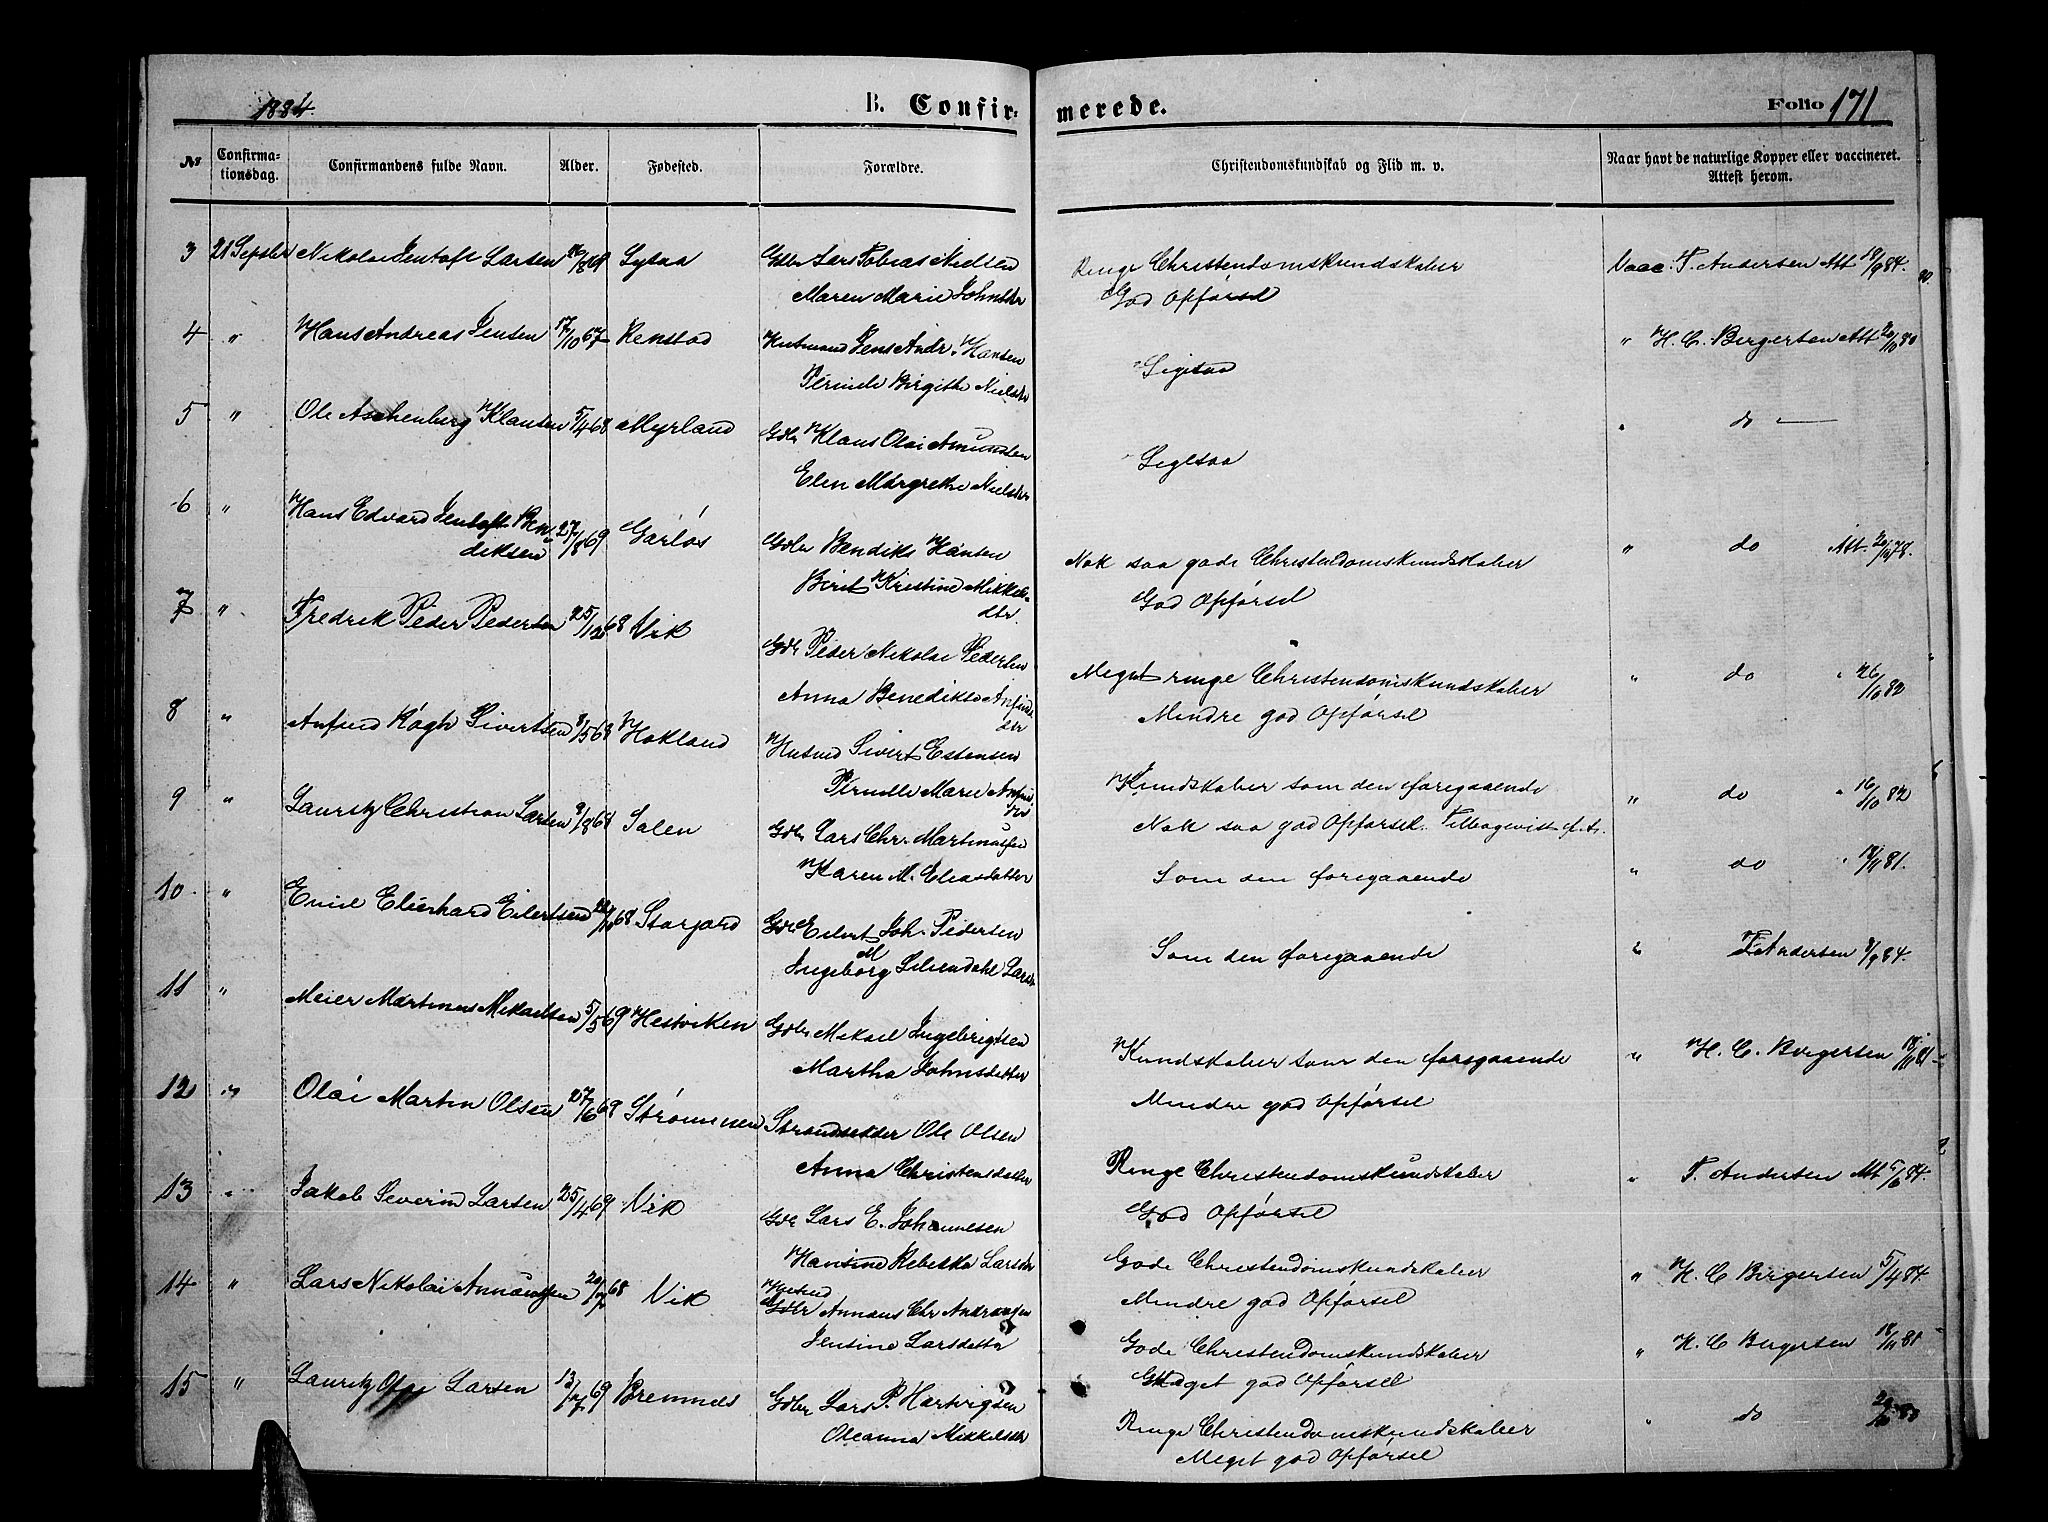 1884.
B. Confir-
merede.
Folio 171
No
Confirma-
tionsdag.
Confirmandens fulde Navn.
Alder.
Fødested.
Forældre.
Christendomskundskab og Flid m. v.
Naar havt de naturlige Kopper eller vaccineret.
Attest herom.
3 21 Septbr Nikolai Jentoft Larsen Gdbr Lars Tobias Nielsen
Maren Marie Johnsdtr
Ringe Christendomskundskaber
God Opførsel
Vacc. T. Andersen Att 18/9 84.
4 " Hans Andreas Jensen 17/10 67 Renstad Husmand Jens Andr. Hansen
Pernele Birgithe Nielsdtr
Ligesaa
" H. C. Birgersen Att
5 " Ole Aschenberg Klausen 5/4 68 Myrland Gdbr Klaus Olai Amundsen
Elen Margrethe Nielsdtr
Ligesaa
" do —
6 " Hans Edvard Jentoft Ben-
diksen 27/8 69 Garløs Gdbr Bendiks Hansen
Berit Kristine Mikkels-
dtr.
Nok saa gode Christendomskundskaber
God Opførsel
" do Att.
7 " Fredrik Peder Pedersen 25/12 68 Vik Gdbr Peder Nikolai Pedersen
Anna Benedikte
dtr
Meget ringe Christendomskundskaber
Mindre god Opførsel
" do " 26/10 82
8 " Anfind Køgh Sivertsen 3/5 68 Hokland Husmd Sivert Estensen
Pernelle Marie
dtr
Kundskaber som den foregaaende
Nok saa god Opførsel.
" do " 16/10 82
9 " Lauritz Christian Larsen 9/8 68 Salen Gdbr Lars Chr. Martinussen
Karen M. Eliasdatter
Som den foregaaende
" do " 18/11 81.
10 " Emil Eberhard Eilertsen Storjord Gdbr Eilert Joh. Pedersen
Ingeborg M Larsd
Som den foregaaende
" T. Andersen 8/9 84.
11 " Meier Martinus Mikaelsen 5/5 69 Hestviken Gdbr Mikael Ingebrigtsen
Martha Johnsdatter
Kundskaber som den foregaaende
Mindre god Opførsel
" H. C. Birgersen 18/11 81
12 " Olai Martin Olsen 27/6 68 Strømmen Strandsidder Ole Olsen
Anna Christensdatter
Ringe Christendomskundskaber
God Opførsel
" T. Andersen Att 5/6 84.
13 " Jakob Severin Larsen 25/4 69 Vik Gdbr Lars E. Johannesen
Hansine Rebekka Larsdtr
Gode Christendomskundskaber
Mindre god Opførsel
" H. C Birgersen 5/4 84.
14 " Lars Nikolai 20/7 68 Vik Husmd
Gdbr Chr
Jensine Larsdatter
Gode Christendomskundskaber
Meget god Opførsel
" H. C Birgersen 18/11 81
15 " Lauritz Olai Larsen 13/7 69 Bremnes Gdbr Lars P. Hartvigsen
Oleanna Mikkelsdtr
Ringe Christendomskundskaber
Meget god Opførsel
" do